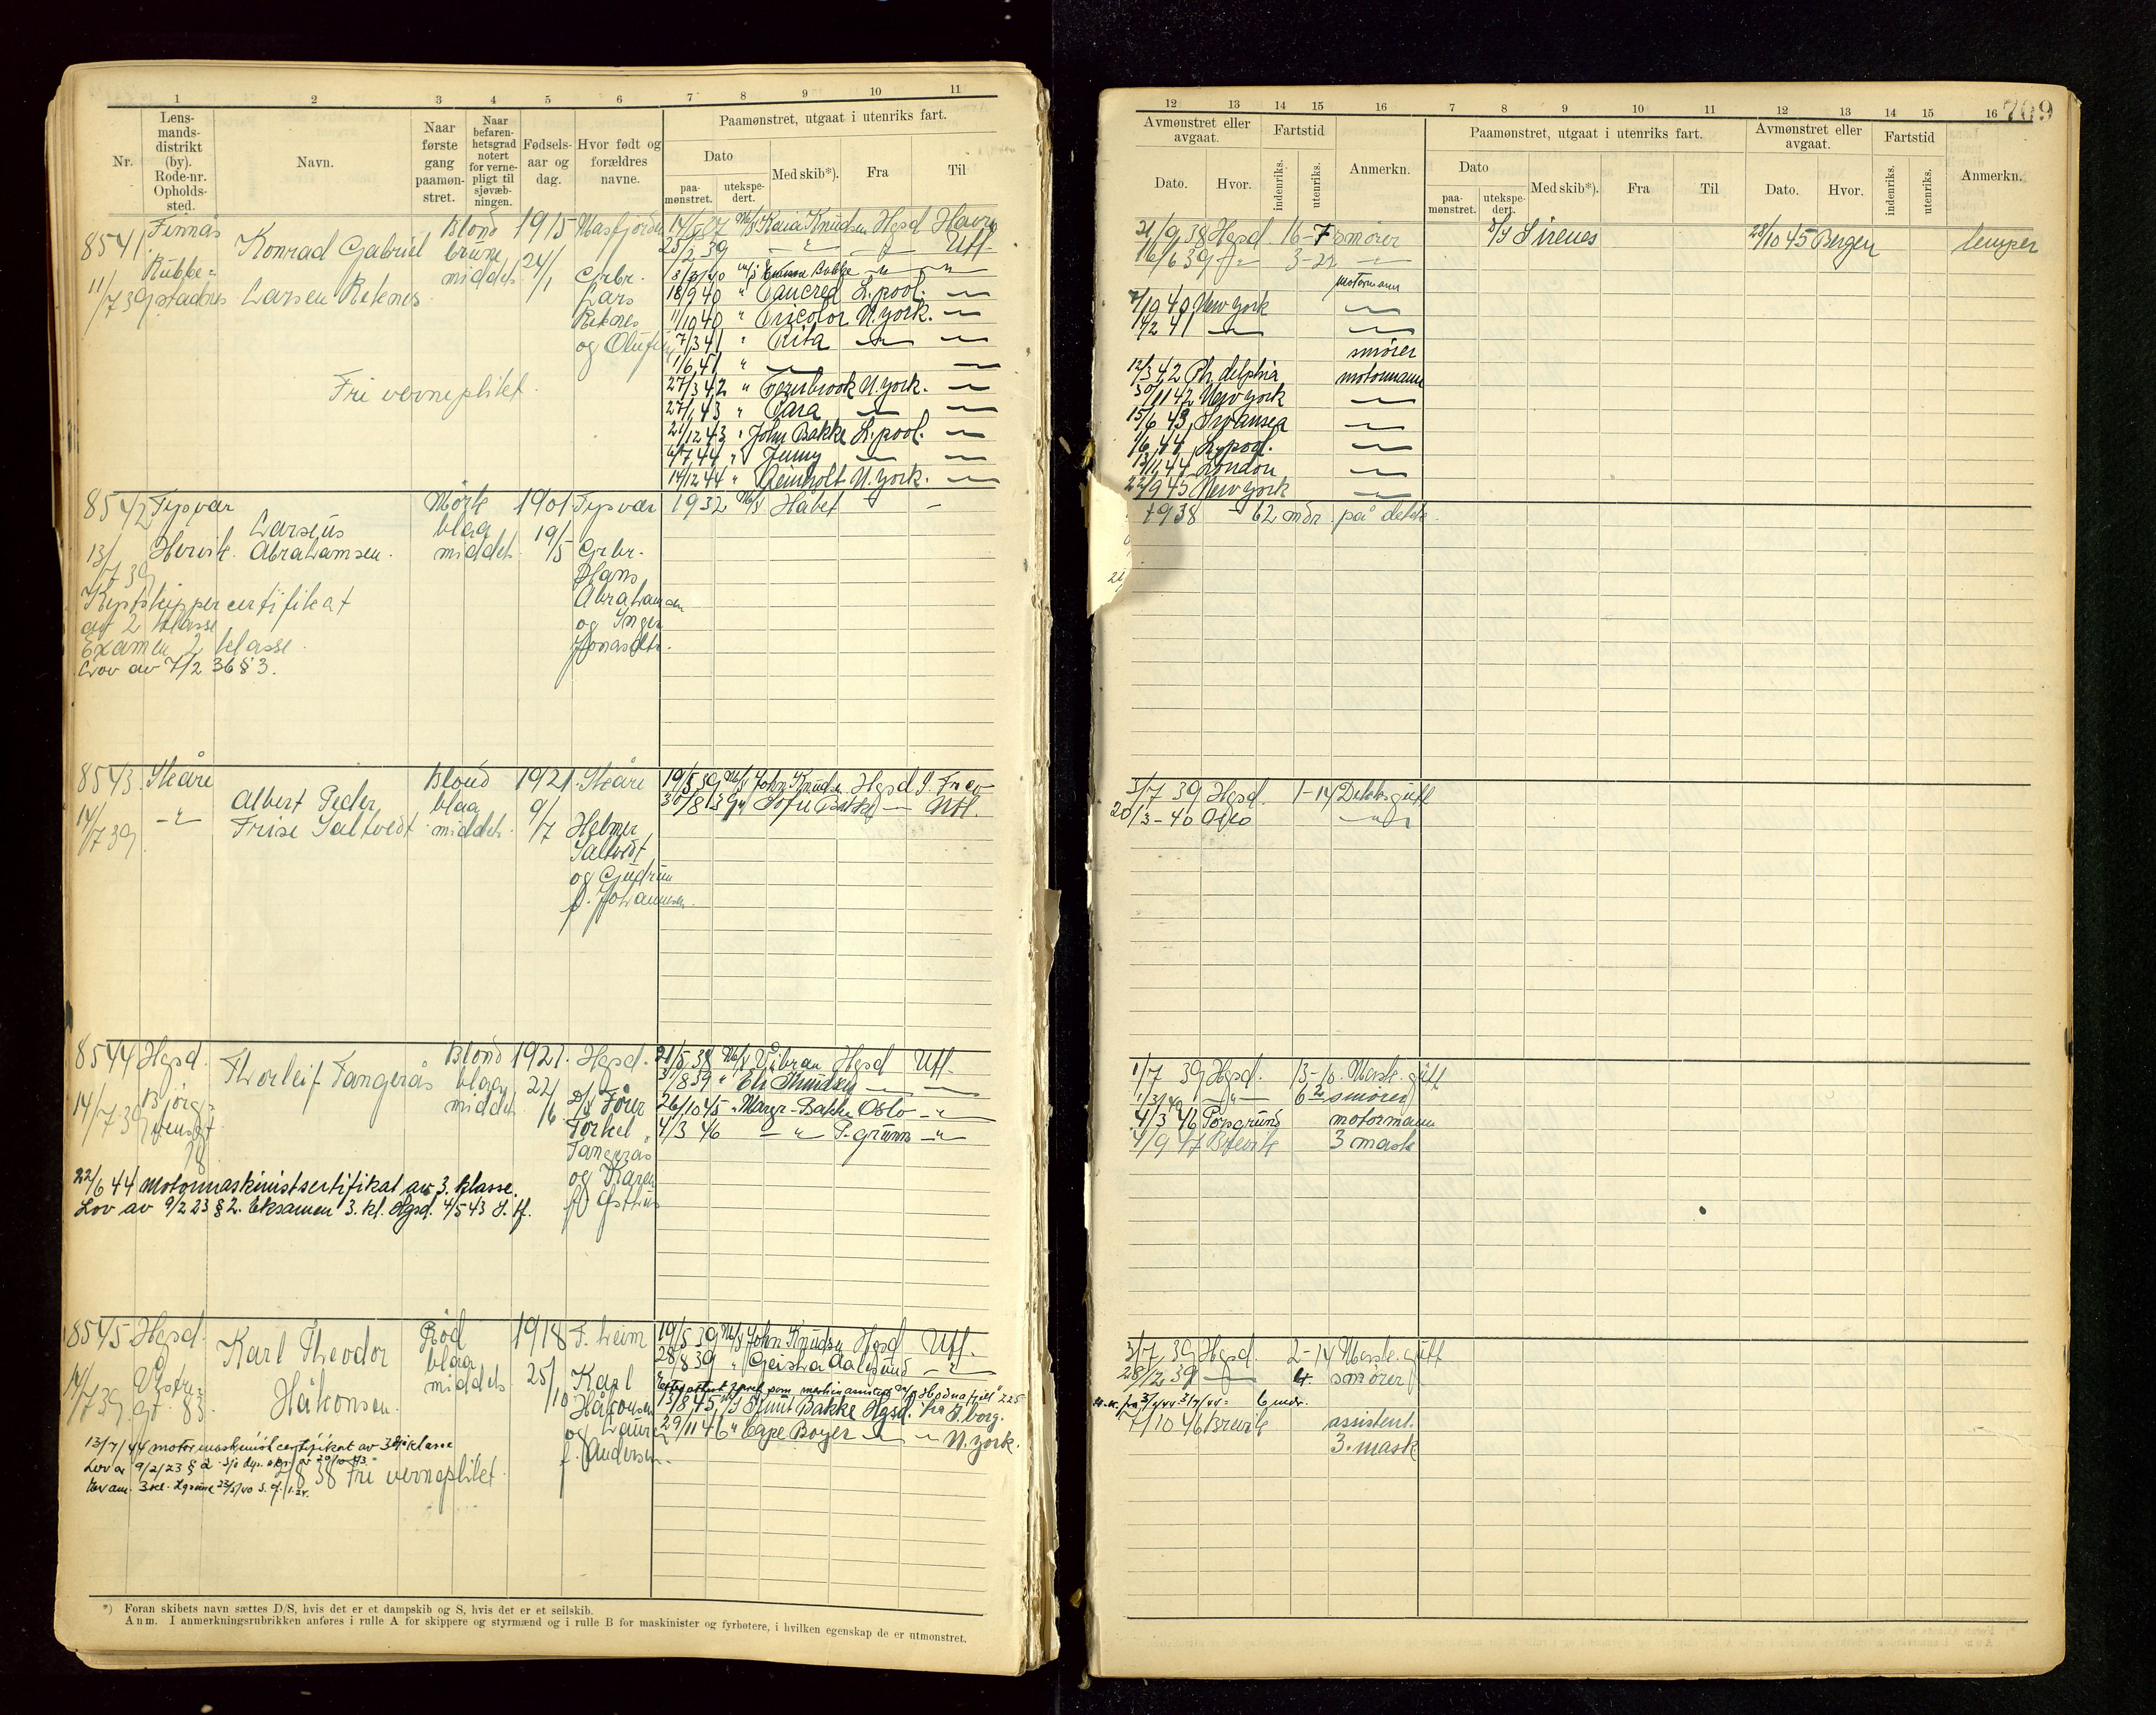 1 2 3 4 5 6 7 8 9 10 11
Nr.
Lens-
mands-
distrikt
(by).
Rode-nr.
Opholds-
sted.
Navn.
Naar
første
gang
paamøn-
stret.
Naar
befaren-
hetsgrad
notert
for verne-
pligt til
sjøvæb-
ningen.
Fødsels-
aar og
dag.
Hvor født og
forældres
navne.
Paamønstret, utgaat i utenriks fart.
Dato
paa-
mønstret.
utekspe-
dert.
Med skib*).
Fra
Til
8541 Finnås
Konrad Gabriel
Larsen Reknes
11/7 39
Blond
brune
middels
1915
24/1
Masfjorden
Grbr.
Lars
Reknes
Fri verneplikt.
M/S Kaia Knudsen Hgsd Havre
25/2 39 Utl.
18/9 40 " Tancred L.pool.
11/10 40 " Tricolor N.york.
7/3 41 " Rita
1/6 41 "
27/3 42 N.york.
27/1 43 " Tara
21/12 43 " John Bakke L.pool.
4/7 44 " Jenny
14/12 44 " Reinholt N.york.
8542 Tysvær
Larsius
Hervik. Abrahamsen.
13/7 39
Mørk
blaa
middels
1901
19/5
Tysvær
Grbr.
Hans
Abrahamsen
og Inger
Jonasdtr.
1932 M/S Håbet
Kystskippercertifikat
av 2 klasse
Examen 2 klasse.
Lov av 7/2 36 § 3.
8543. Skåre
Albert Peder
Frise Saltvedt
14/7 39
Blond
blaa
middels.
1921.
9/7
Skåre
Helmer
Saltvedt
og Gudrun
f. Johannesen.
19/5 39 M/S John Knudsen Hgsd
30/8 39 Sofie Bakke Utl.
8544 Hgsd.
Thorleif Tangerås
14/7 39
Blond
blaa
middels
1921.
22/6
Hgsd.
Torkel
Tangerås
og Karen
21/5 38 M/S Vibran Hgsd Utl.
31/8 39 " El. Knudsen
26/10 45 " Margr. Bakke Oslo
4/3 46 P.grunn
22/6 44 Motormaskinistsertifikat av 3. klasse.
Lov av 9/2 23 § 2. Eksamen 3. kl. Hgsd. 4/5 43 S. H.
8545 Hgsd.
Karl Theodor
Håkonsen.
14/7 39
gt. 83.
Rød
blaa
middels
1918
25/10
Karl
Håkonsen
og Laura
f. Andersen.
19/5 39 M/S John Knudsen Hgsd Utl.
28/8 39 " Geisha Aalesund
13/8 45 M/S Knut Bakke Hgsd.
29/11 46 " Cape Boyer N.york.
13/7/44 motormaskinist certifikat av 3die klasse
Lov av 9/2/23 § 2
38 Fri verneplikt.
*) Foran skibets navn sættes D/S, hvis det er et dampskib og S, hvis det er et seilskib.
Anm. I anmerkningsrubrikken anføres i rulle A for skippere og styrmænd og i rulle B for maskinister og fyrbøtere, i hvilken egenskap de er utmønstret.
12 13 14 15 16 7 8 9 10 11 12 13 14 15 16
709
Avmønstret eller
avgaat.
Dato.
Hvor.
Fartstid
indenriks.
utenriks.
Anmerkn.
Paamønstret, utgaat i utenriks fart.
Dato
paa-
mønstret.
utekspe-
dert.
Med skib*).
Fra
Til
Avmønstret eller
avgaat.
Dato.
Hvor.
Fartstid
indenriks.
utenriks.
Anmerkn.
21/9 38 Hgsd. 16-7 smører
D/S Sirenes
28/10 45 Bergen
lemper
16/6 39 3-22
motormann
7/10 40 New york
14/2 41
smører
12/3 42 Ph.delphia motormann
30/11 42 New york
15/6 43 Swansea
1/6 44 L.pool.
13/11 44 London
22/9 45 New york
1938 62 mdr på dekk.
3/7 39 Hgsd. 1-14 Dekksgutt
20/3-40 Oslo
1/7 39 Hgsd. 13-10. Mask. gutt
smører
4/3 46 Porsgrund motormann
4/9 47 Brevik 3 mask
3/7 39 Hgsd. 2-14 Mask. gutt
28/12 39 4. smører
6 mdr.
7/10 46 Brevik assistent.
3. mask